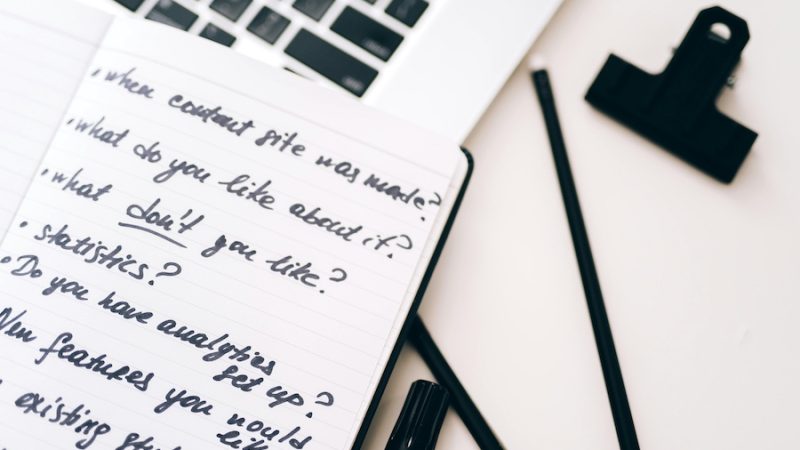 • when site was made?
• what do you like about it?
• what don't you like?
• statistics?
• Do you have analytics
set up?
New features you would
like
existing